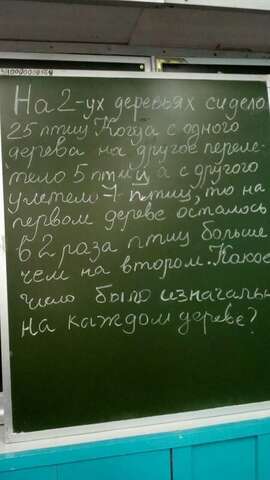 На 2-ух деревьях сидело
25 птиц. Когда с одного
дерева на другое переле-
тело 5 птиц, а с другого
улетело 7 птиц, то на
первом дереве осталось
в 2 раза птиц больше
чем на втором. Какое
число было изначальн
на каждом дереве?